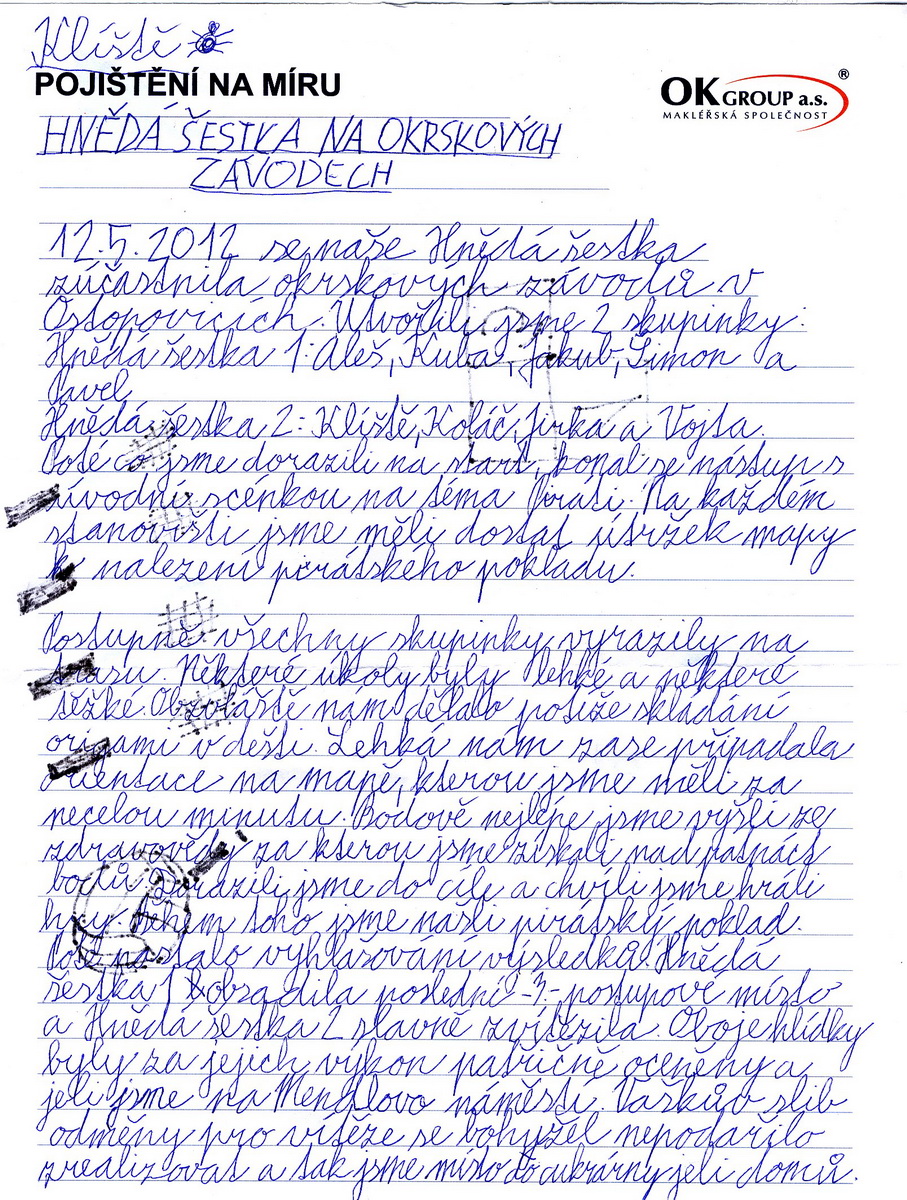 Klíště
POJIŠTĚNÍ NA MÍRU
OK GROUP a.s. ®
MAKLÉŘSKÁ SPOLEČNOST
HNĚDÁ ŠESTKA NA OKRSKOVÝCH
ZÁVODECH
12.5.2012 se naše Hnědá šestka
zúčastnila okrskových závodů v
Ostopovicích. Utvořili jsme 2 skupinky:
Hnědá šestka 1: Aleš, Kuba, Jakub, Šimon a
Pavel
Hnědá šestka 2: Klíště, Koláč, Jirka a Vojta.
Poté co jsme dorazili na start, konal se nástup s
úvodní scénkou na téma Piráti. Na každém
stanovišti jsme měli dostat útržek mapy
k nalezení pirátského pokladu.
Postupně všechny skupinky vyrazily na
trasu. Některé úkoly byly lehké a některé
těžké. Obzvláště nám dělalo potíže skládání
origami v dešti. Lehká nám zase připadala
orientace na mapě, kterou jsme měli za
necelou minutu. Bodově nejlépe jsme vyšli ze
zdravovědy za kterou jsme získali nad patnáct
bodů. Dorazili jsme do cíle a chvíli jsme hráli
hry. Během toho jsme našli pirátský poklad.
Poté nastalo vyhlašování výsledků. Hnědá
šestka 1 obsadila poslední -3.- postupové místo
a Hnědá šestka 2 slavně zvítězila. Oboje hlídky
byly za jejich výkon patřičně oceněny a
jeli jsme na Mendlovo náměstí. Vaškův slib
odměny pro vítěze se bohyžel nepodařilo
zrealizovat a tak jsme místo do cukrárny jeli domů.